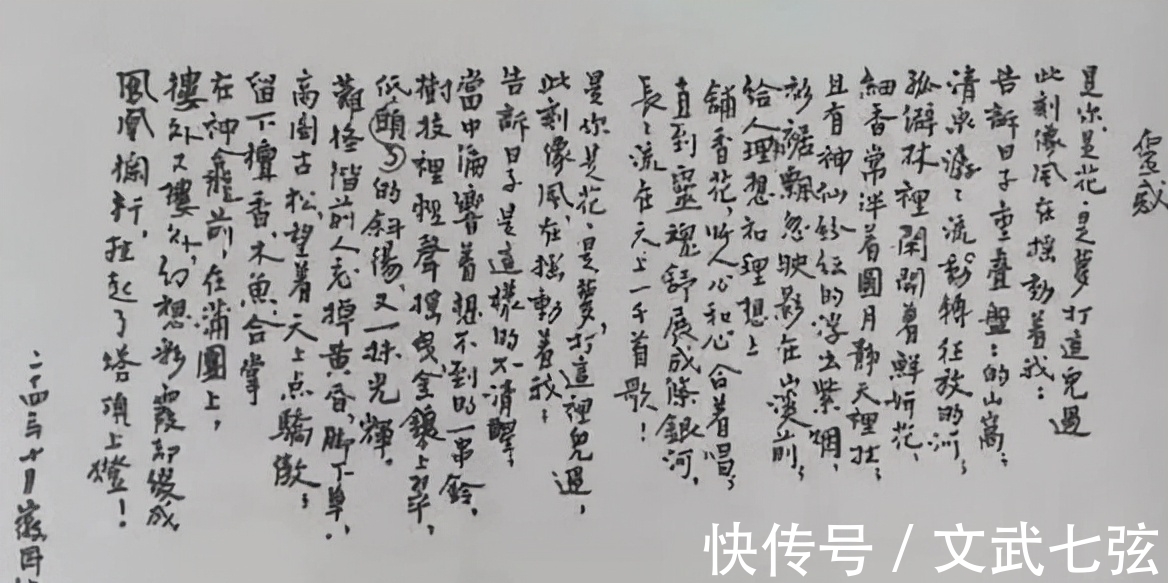 靈感
是你,是花,是夢打這兒過
此刻像風在搖動着我;
告訴日子重疊盤〻的山窩;
清泉潺〻流動轉狂放的河;
孤僻林裡閒開着鮮妍花,
細香常伴着圓月靜天裡挂;
且有神仙紛紜的浮出紫烟,
衫裾飄忽映影在山溪前;
給人理想和理想上
鋪香花,叫人心和心合着唱;
直到靈魂舒展成條銀河,
長〻流在天上一千首歌!
是你,是花,是夢,打這裡兒過,
此刻像風,在搖動着我;
告訴日子是這樣的不清醒;
當中偏響着想不到的一串鈴,
樹枝裡輕聲搖曳;金鑲上翠,
低頭了的斜陽,又一抹光輝。
難怪階前人忘掉黃昏,脚下草,
高閣古松,望着天上点驕傲;
留下檀香,木魚,合掌
在神龕前,在蒲團上,
樓外又樓外,幻想彩霞卻綴成
鳳凰欄杆,挂起了塔頂上燈!
二十四年十月 徽因
快传号 / 文武七弦